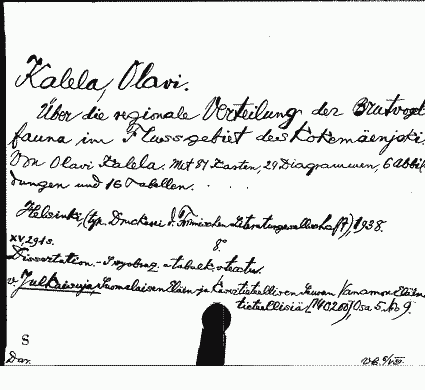 Kalela, Olavi.
Über die regionale Verteilung der Brutvogel
fauna im Flussgebiet des Kokemäenjoki.
Von Olavi Kalela. Mit 87 Karten, 24 Diagrammen, 6 Abbil
dungen und 16 Tabellen. . . .
Helsinki, (tip. Druckerei d. Finnischen Literaturgesellschaft), 1938.
XV, 291 s. 8°
Dissertation.
v Julkaisuja, Suomalaisen Eläin- ja Kasvitieteellisen Seuran Vanamon Eläin
tieteellisiä Osa 5. No 9.
S
Dar.